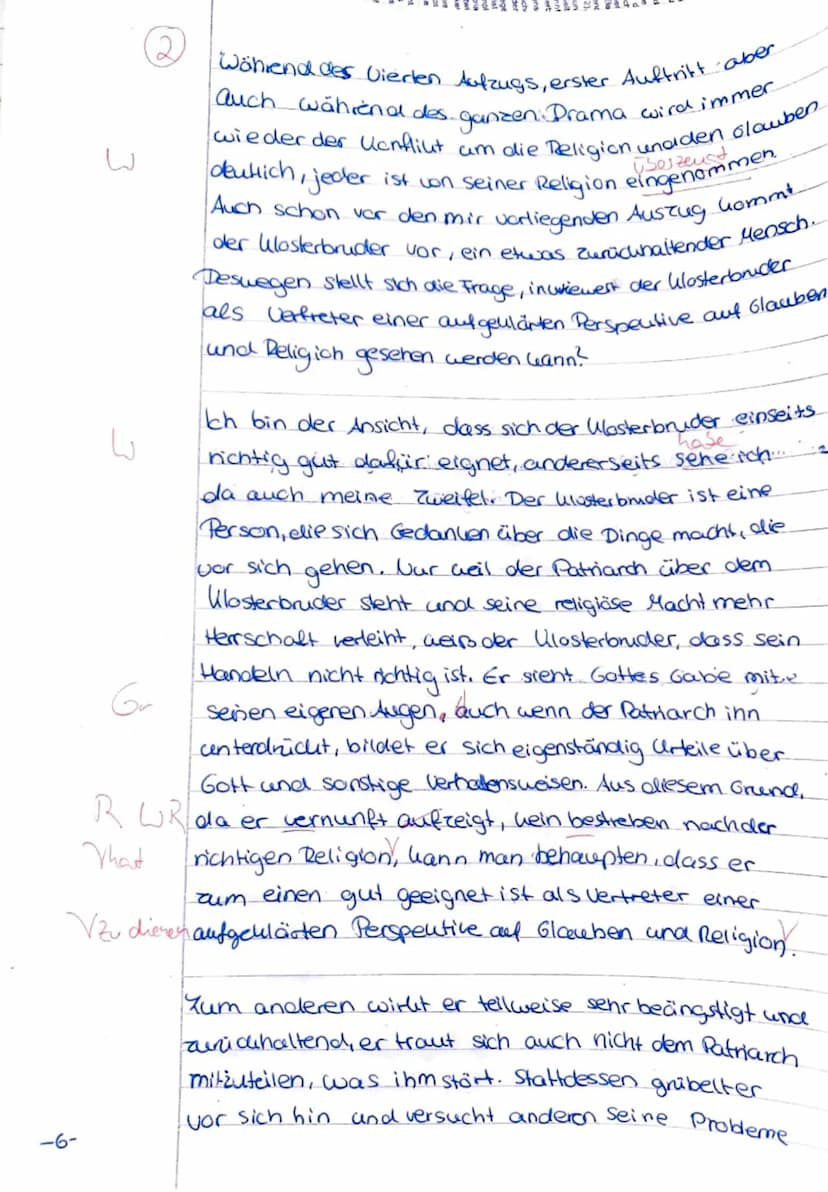 ②
Während des Vierten Aufzugs, erster Auftritt aber
auch während des ganzen Drama wird immer
wieder der Konflikt um die Religion und den Glauben
überzeugt
W deutlich, jeder ist von seiner Religion eingenommen.
Auch schon vor den mir vorliegenden Auszug kommt
der Klosterbruder vor, ein etwas zurückhaltender Mensch.
Deswegen stellt sich die Frage, inwieweit der Klosterbruder
als Vertreter einer aufgeklärten Perspektive auf Glauben
und Religion gesehen werden kann?
Ich bin der Ansicht, dass sich der Klosterbruder einseits
habe
W richtig gut dafür eignet, andererseits sehe ich
da auch meine Zweifel. Der Klosterbruder ist eine
Person, die sich Gedanken über die Dinge macht, die
vor sich gehen. Nur weil der Patriarch über dem
Klosterbruder steht und seine religiöse Macht mehr
Herrschaft verleiht, weiß der Klosterbruder, dass sein
Handeln nicht richtig ist. Er sieht Gottes Gabe mit
Gr seinen eigenen Augen, auch wenn der Patriarch inn
unterdrückt, bildet er sich eigenständig Urteile über
Gott und sonstige Verhaltensweisen. Aus diesem Grund,
R W R da er vernunft aufzeigt, kein bestreben nach der
√hat richtigen Religion√, kann man behaupten, dass er
zum einen gut geeignet ist als Vertreter einer
√zu dienen aufgeklärten Perspektive auf Glauben und Religion√.
Zum anderen wirkt er teilweise sehr beängstigt und
zurückhaltend, er traut sich auch nicht dem Patriarch
mitzuteilen, was ihm stört. Stattdessen grübelt er
vor sich hin und versucht anderen seine Probleme
-6-